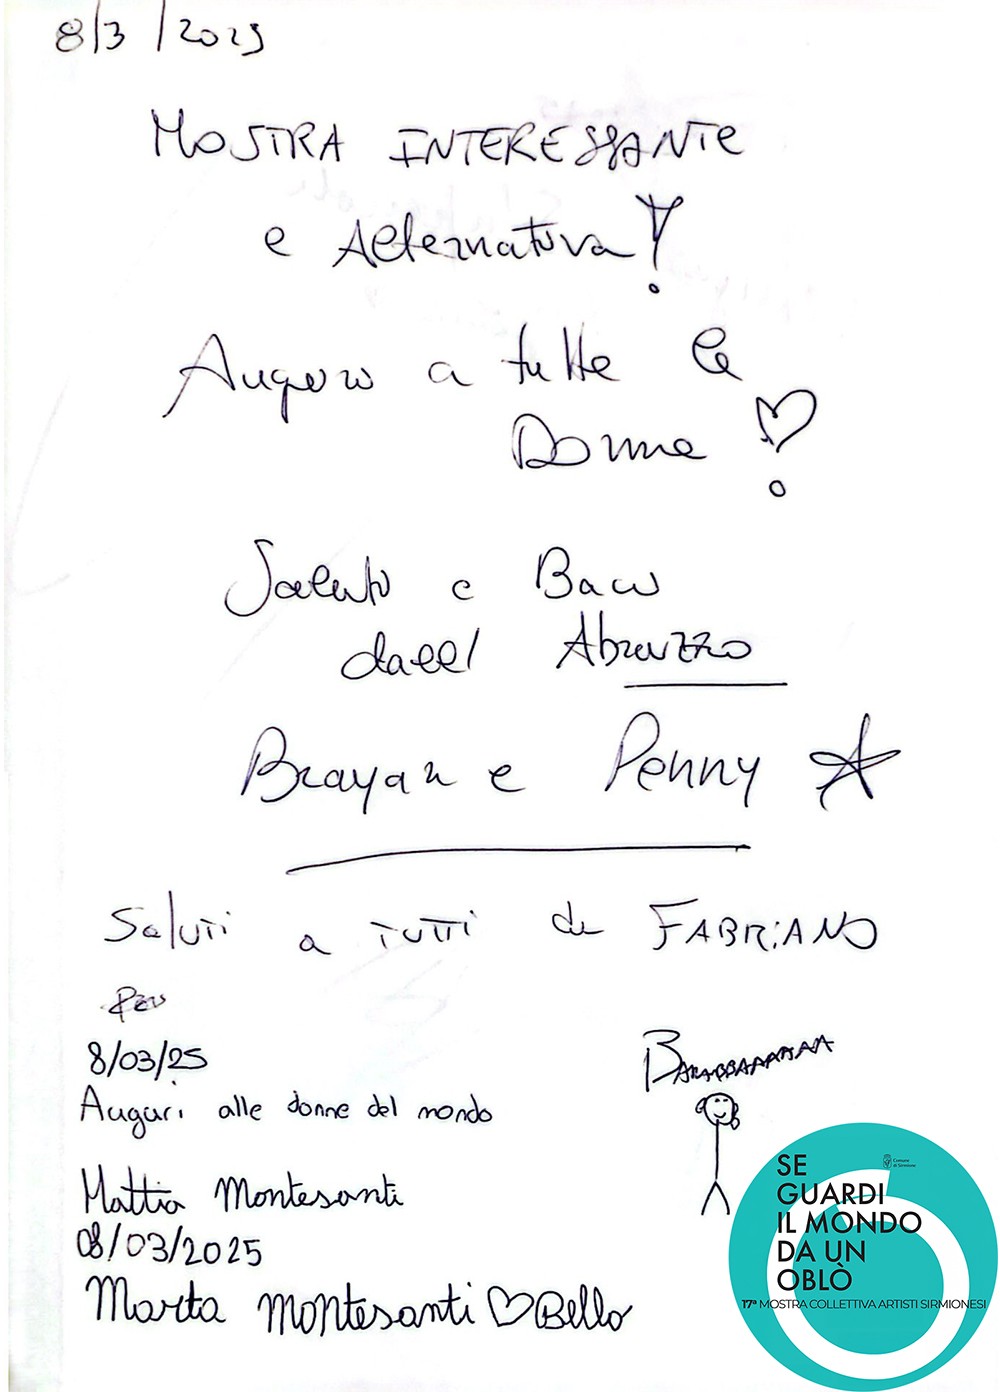 8/3/2025
MOSTRA INTERESSANTE
e Alternativa!
Auguro a tutte le
Donne
Saluto e Baci
dall' Abruzzo
Brayan e Penny
Saluti a TUTTI da FABRIANO
8/03/25
Auguri alle donne del mondo
Mattia Montesanti
08/03/2025
Marta Montesanti Bello
SE
GUARDI
IL MONDO
DA UN
OBLÒ
Comune
di Sirmione
17ª MOSTRA COLLETTIVA ARTISTI SIRMIONESI